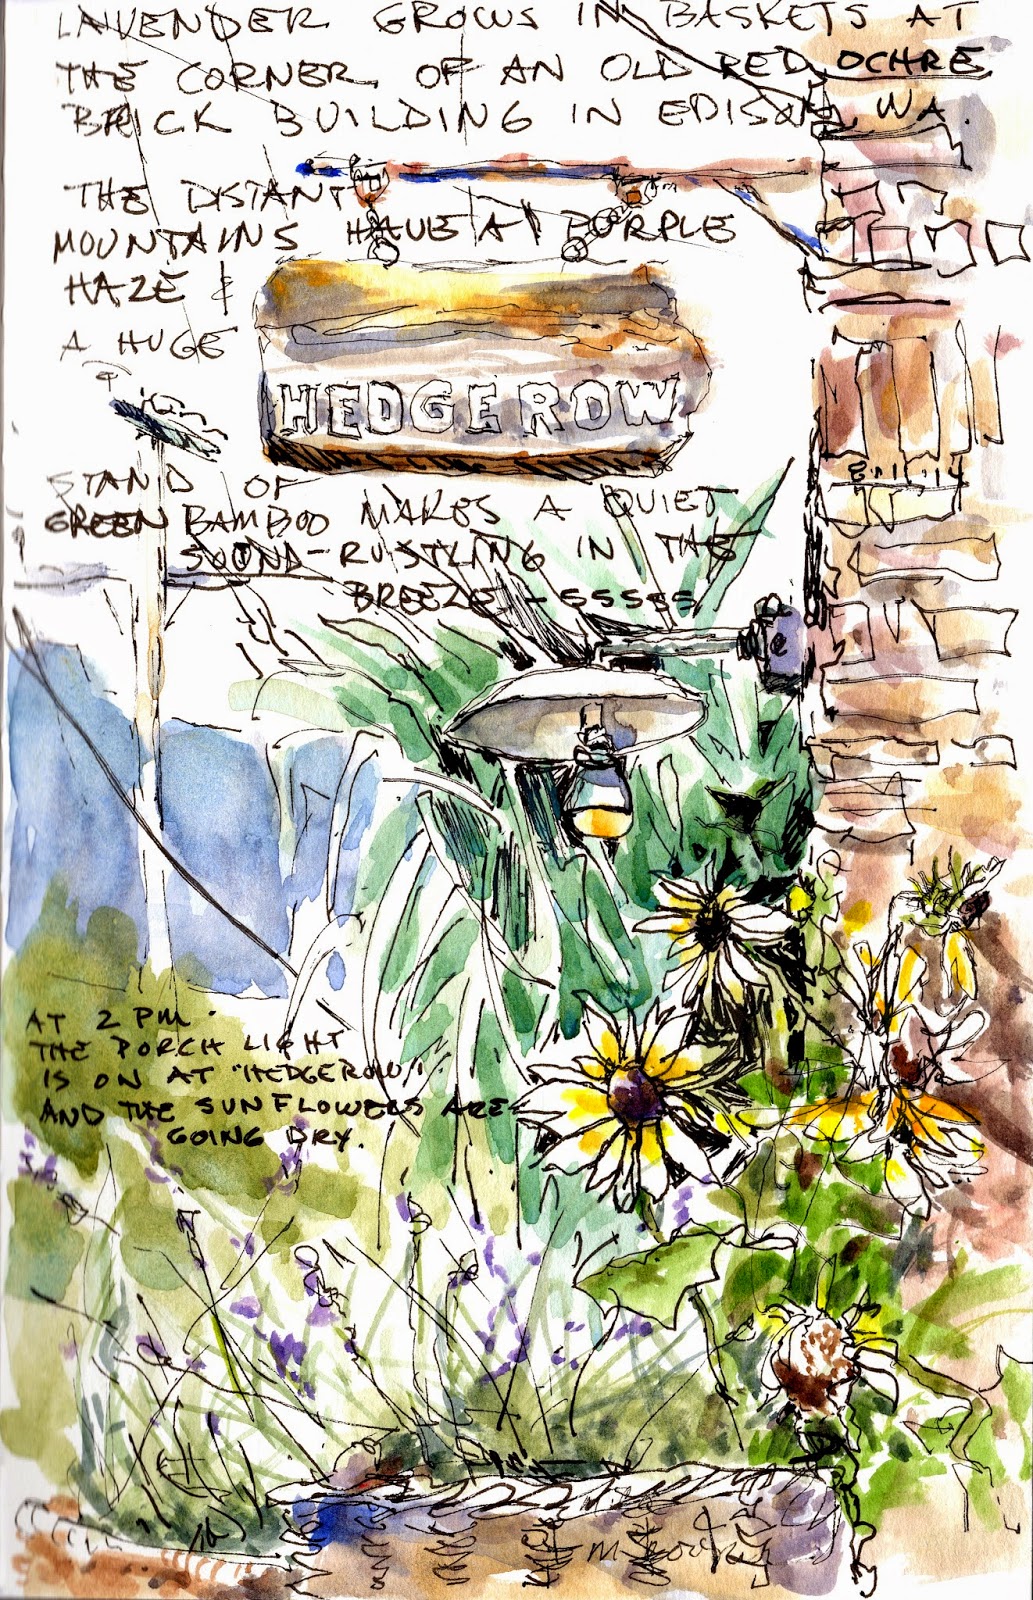 LAVENDER GROWS IN BASKETS AT
THE CORNER OF AN OLD RED OCHRE
BRICK BUILDING IN EDISON, WA.
THE DISTANT
MOUNTAINS HAVE A PURPLE
HAZE &
A HUGE
HEDGEROW
STAND OF
GREEN BAMBOO MAKES A QUIET
SOUND - RUSTLING IN THE
BREEZE - SSSSS
8.21.14
AT 2 PM.
THE PORCH LIGHT
IS ON AT "HEDGEROW"
AND THE SUNFLOWERS ARE
GOING DRY.